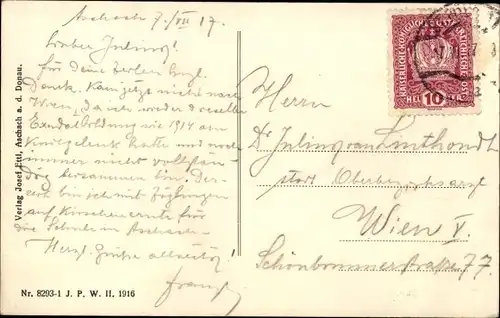 Aschach 7./VII 17.
Lieber Julius!
für Deine Zeilen
Dank. Kann jetzt nicht nach
Wien, da ich wieder dieselbe
Exsudatbildung wie 1914 am
Kniegelenk hatte und noch
immer nicht vollständig
bin. Derzeit
bin ich mit Zöglingen
auf Kirschenernte für
die Schule in Aschach.
Herzl. Grüße allseits!
Franz
Verlag Josef Ettl, Aschach a. d. Donau.
Nr. 8293-1 J. P. W. II. 1916
KAISERLICHE KÖNIGLICHE ÖSTERREICHISCHE POST
HELLER 10 HELLER
Herrn
Dr Julius von Linthoudt
stadt. Oberbezirksarzt
Wien V.
Schönbrunnerstrasse 77.